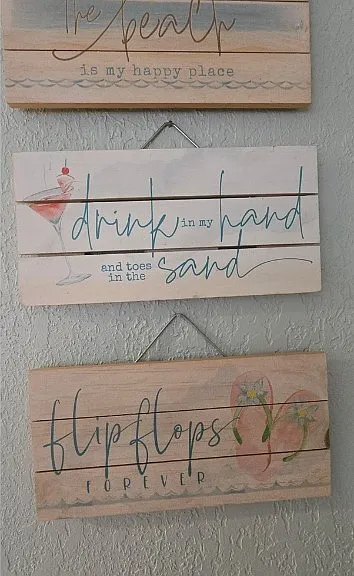 The beach
is my happy place
drink in my hand
and toes
in the sand
flip flops
FOREVER